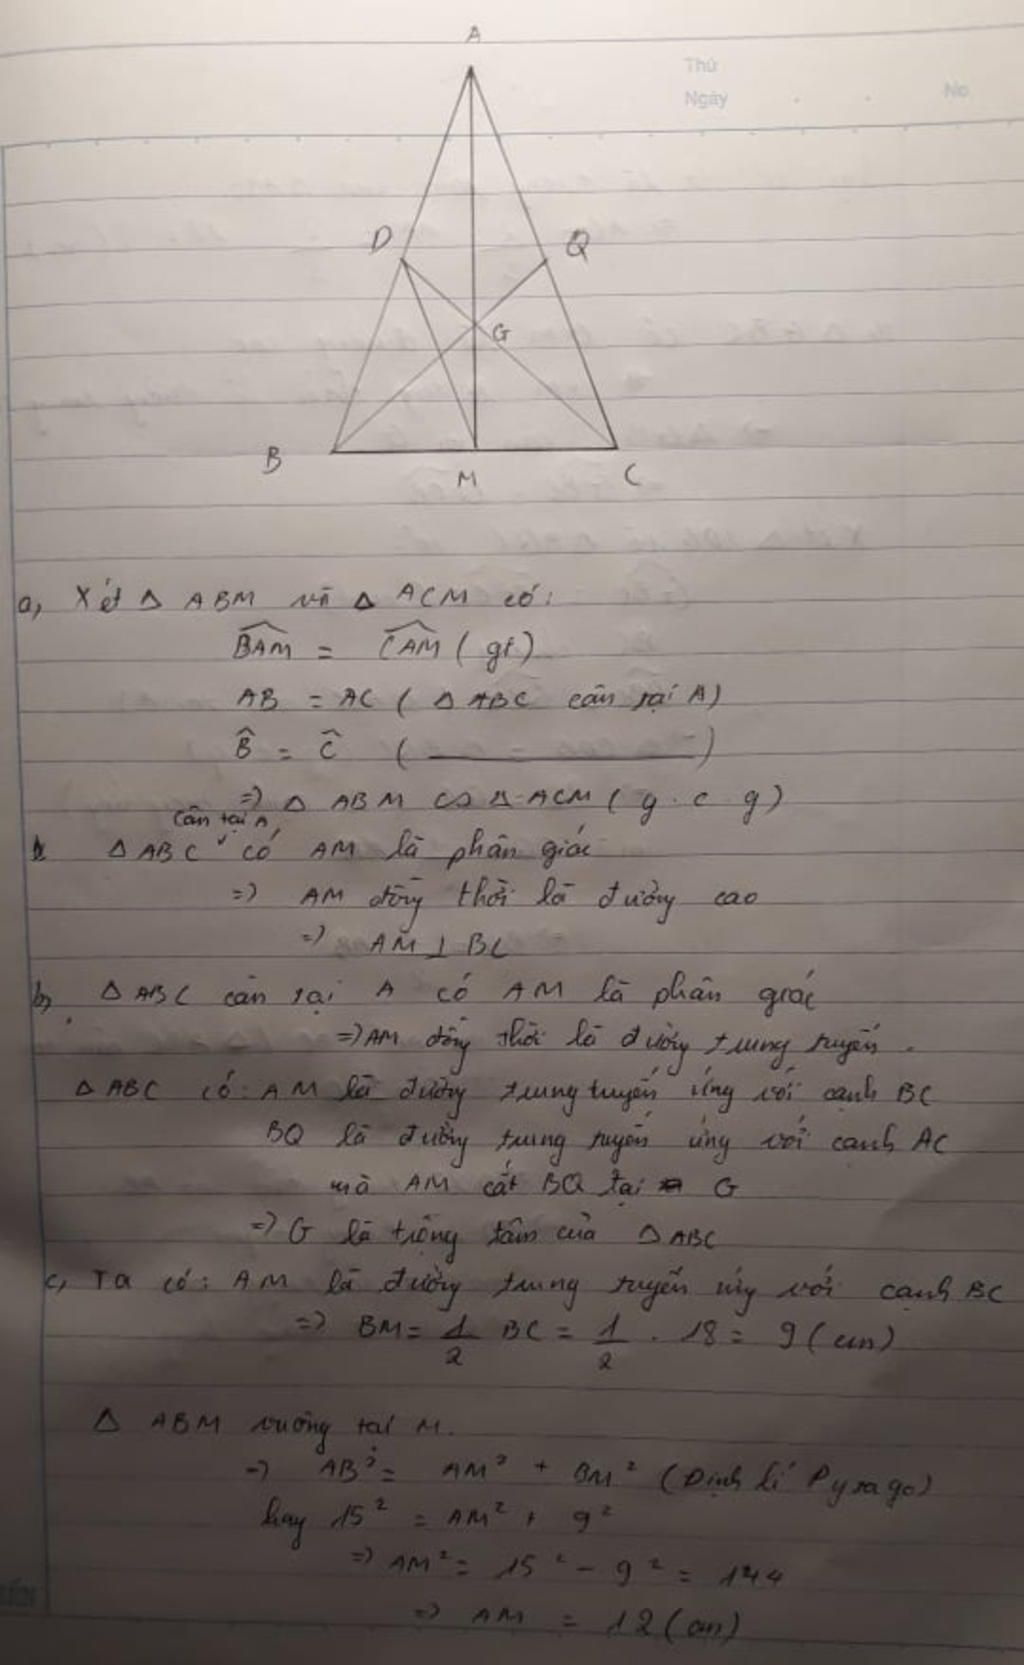 Thứ
Ngày
No
A
D
Q
G
B
M
C
a, Xét Δ ABM và Δ ACM có:
BAM = CAM ( gt)
AB = AC ( Δ ABC cân tại A)
B̂ = Ĉ ( ——— )
=> Δ ABM ∽ Δ ACM ( g . c . g)
cân tại A
Δ ABC có AM là phân giác
=> AM đồng thời là đường cao
=> AM ⊥ BC
b, Δ ABC cân tại A có AM là phân giác
=> AM đồng thời là đường trung tuyến .
Δ ABC có : AM là đường trung tuyến ứng với cạnh BC
BQ là đường trung tuyến ứng với cạnh AC
mà AM cắt BQ tại G
=> G là trọng tâm của Δ ABC
c, Ta có : AM là đường trung tuyến ứng với cạnh BC
=> BM = 1/2 BC = 1/2 . 18 = 9 ( cm)
Δ ABM vuông tại M.
=> AB² = AM² + BM² ( Định lí Pytago)
hay 15² = AM² + 9²
=> AM² = 15² - 9² = 144
=> AM = 12 ( cm)